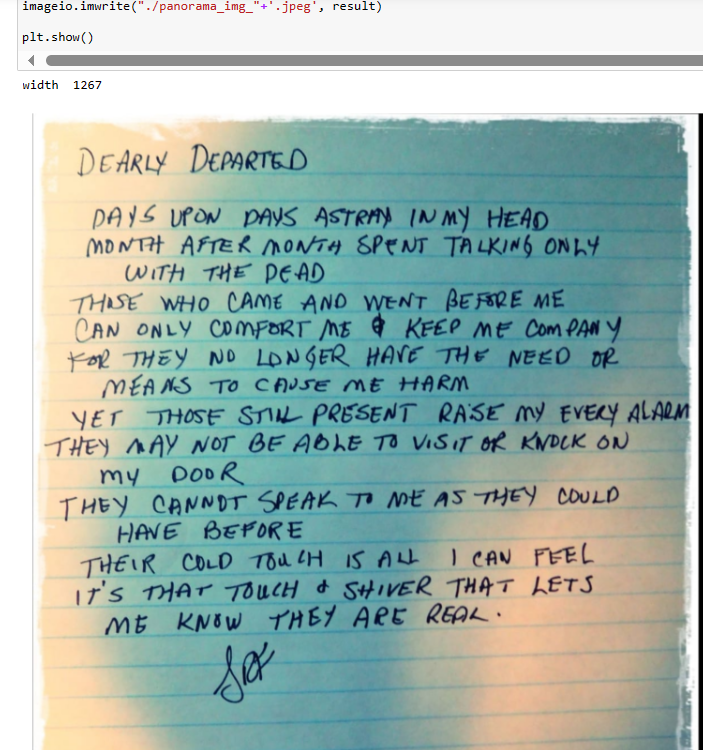 imageio.imwrite("./panorama_img_"+'.jpeg', result)
plt.show()
width 1267
DEARLY DEPARTED
DAYS UPON DAYS ASTRAY IN MY HEAD
MONTH AFTER MONTH SPENT TALKING ONLY
WITH THE DEAD
THOSE WHO CAME AND WENT BEFORE ME
CAN ONLY COMFORT ME & KEEP ME COMPANY
FOR THEY NO LONGER HAVE THE NEED OR
MEANS TO CAUSE ME HARM
YET THOSE STILL PRESENT RAISE MY EVERY ALARM
THEY MAY NOT BE ABLE TO VISIT OR KNOCK ON
MY DOOR
THEY CANNOT SPEAK TO ME AS THEY COULD
HAVE BEFORE
THEIR COLD TOUCH IS ALL I CAN FEEL
IT'S THAT TOUCH & SHIVER THAT LETS
ME KNOW THEY ARE REAL.